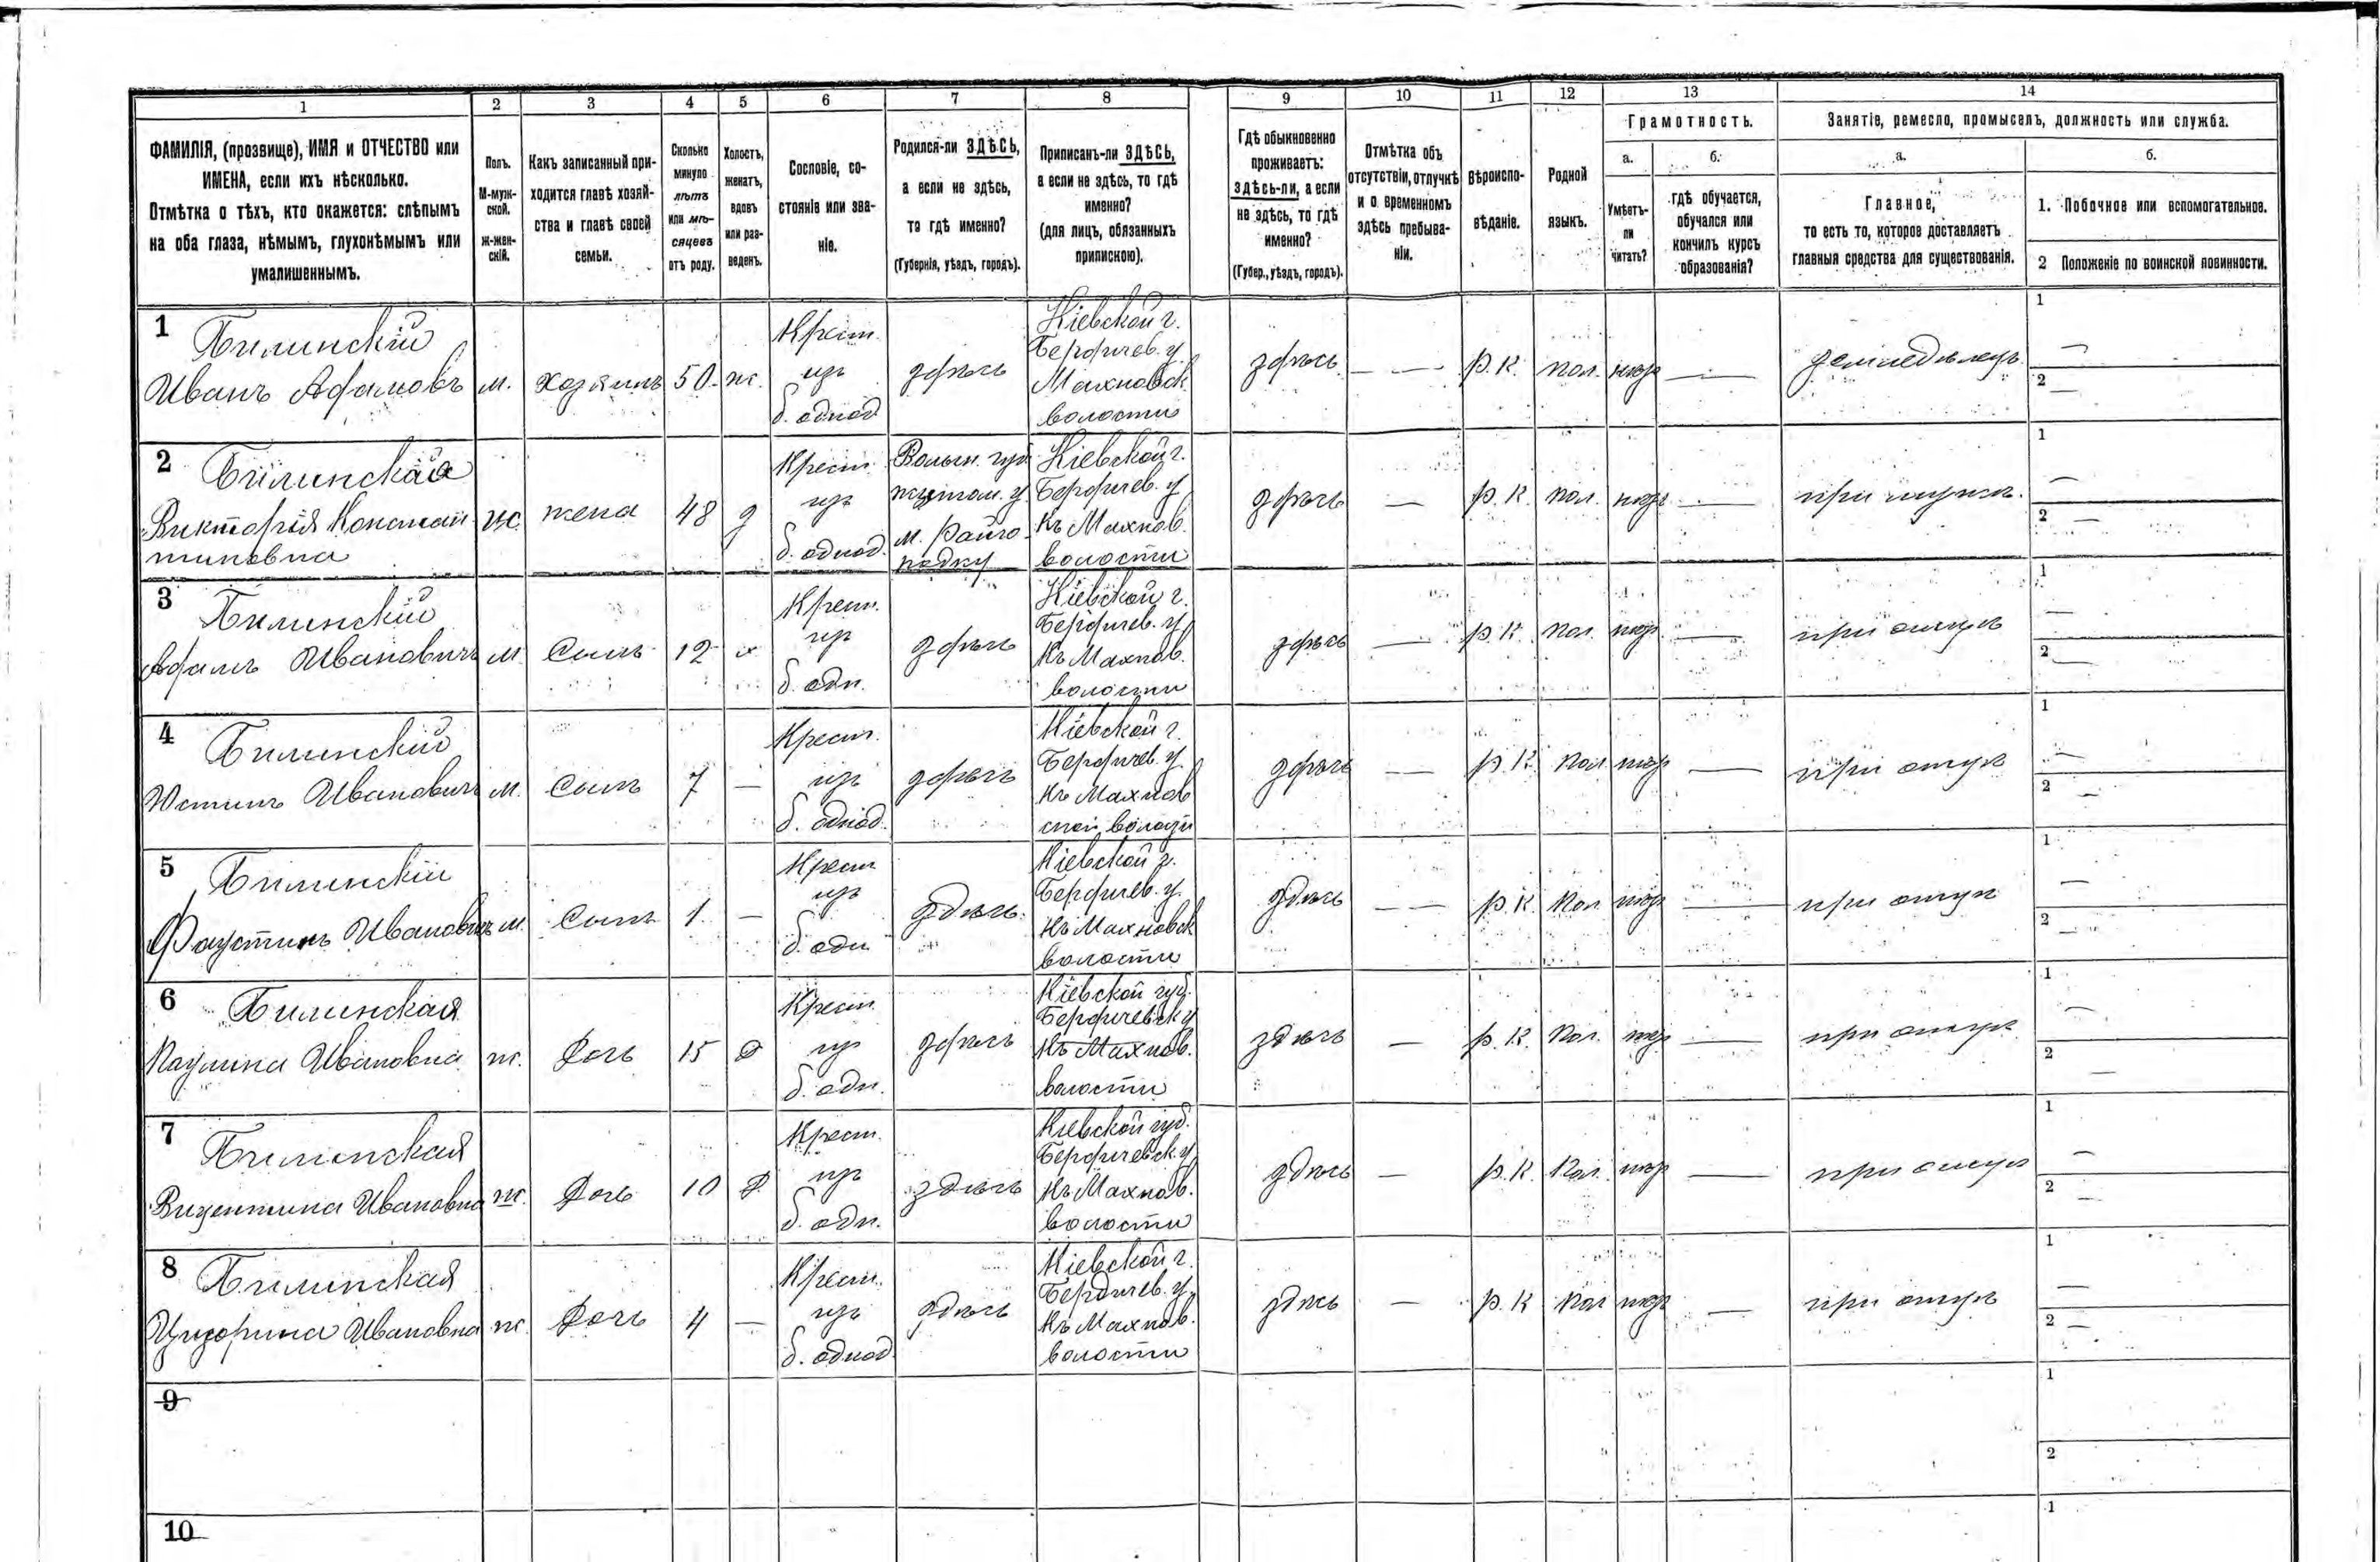 1 2 3 4 5 6 7 8 9 10 11 12 13 14
ФАМИЛІЯ, (прозвище), ИМЯ и ОТЧЕСТВО или
ИМЕНА, если ихъ нѣсколько.
Отмѣтка о тѣхъ, кто окажется: слѣпымъ
на оба глаза, нѣмымъ, глухонѣмымъ или
умалишеннымъ.
Полъ.
М-муж-
ской.
ж-жен-
скій.
Какъ записанный при-
ходится главѣ хозяй-
ства и главѣ своей
семьи.
Сколько
минуло
лѣтъ
или мѣ-
сяцевъ
отъ роду.
Холостъ,
женатъ,
вдовъ
или раз-
веденъ.
Сословіе, со-
стояніе или зва-
ніе.
Родился-ли ЗДѢСЬ,
а если не здѣсь,
то гдѣ именно?
(Губернія, уѣздъ, городъ).
Приписанъ-ли ЗДѢСЬ,
а если не здѣсь, то гдѣ
именно?
(для лицъ, обязанныхъ
припискою).
Гдѣ обыкновенно
проживаетъ:
здѣсь-ли, а если
не здѣсь, то гдѣ
именно?
(Губер., уѣздъ, городъ).
Отмѣтка объ
отсутствіи, отлучкѣ
и о временномъ
здѣсь пребыва-
ніи.
Вѣроиспо-
вѣданіе.
Родной
языкъ.
Грамотность.
а.
Умѣетъ-
ли
читать?
б.
гдѣ обучается,
обучался или
кончилъ курсъ
образованія?
Занятіе, ремесло, промыселъ, должность или служба.
а.
Главное,
то есть то, которое доставляетъ
главныя средства для существованія.
б.
1. Побочное или вспомогательное.
2 Положеніе по воинской повинности.
1 Билинскій
Иванъ Адамовъ
м.
хозяинъ
50
ж.
Крест.
изъ
б. однод.
здѣсь
Кіевской г.
Бердичев. у.
Махновск.
волости
здѣсь
— —
р. к.
пол.
нѣт
—
земледѣлецъ
1 —
2 —
2 Билинская
Викторія Констан
тиновна
ж.
жена
48
з
Крест.
изъ
б. однод.
Волын. губ
житом. у.
м. Райго
родку
Кіевской г.
Бердичев. у
Къ Махнов.
волости
здѣсь
—
р. к.
пол.
нѣт
—
при мужѣ.
1 —
2 —
3 Билинскій
Адамъ Ивановичъ
м.
Сынъ
12
х
Крест.
изъ
б. одн.
здѣсь
Кіевской г.
Бердичев. у.
Къ Махнов.
волости
здѣсь
—
р. к.
пол.
нѣт
—
при отцѣ
1 —
2 —
4 Билинскій
Юстинъ Ивановичъ
м.
Сынъ
7
—
Крест.
изъ
б. однод.
здѣсь
Кіевской г.
Бердичев. у.
Къ Махнов
ской волости
здѣсь
—
р. к.
пол
нѣт
—
при отцѣ
1 —
2 —
5 Билинскій
Фаустинъ Ивановичъ
м.
Сынъ
1.
—
Крест
изъ
б. одн
здѣсь.
Кіевской г.
Бердичев. у.
Къ Махновск
волости
здѣсь
— —
р. к.
пол.
нѣт
—
при отцѣ
1 —
2 —
6 Билинская
Паулина Ивановна
ж.
Дочь
15
д
Крест.
изъ
б. одн.
здѣсь
Кіевской губ.
Бердичевск у
Къ Махнов.
волости
здѣсь
—
р. к.
пол.
нѣт
—
при отцѣ
1 —
2 —
7 Билинская
Вицентина Ивановна
ж.
Дочь
10
д.
Крест.
изъ
б. одн.
здѣсь
Кіевской губ.
Бердичевск. у
Къ Махнов.
волости
здѣсь
—
р. к.
пол.
нѣт
—
при отцѣ
1 —
2 —
8 Билинская
Ивановна
ж.
Дочь
4
—
Крест.
изъ
б. однод
здѣсь
Кіевской г.
Бердичев. у.
Къ Махнов.
волости
здѣсь
—
р. к
пол
нѣт
—
при отцѣ
1 —
2 —
9
1
2
10
1